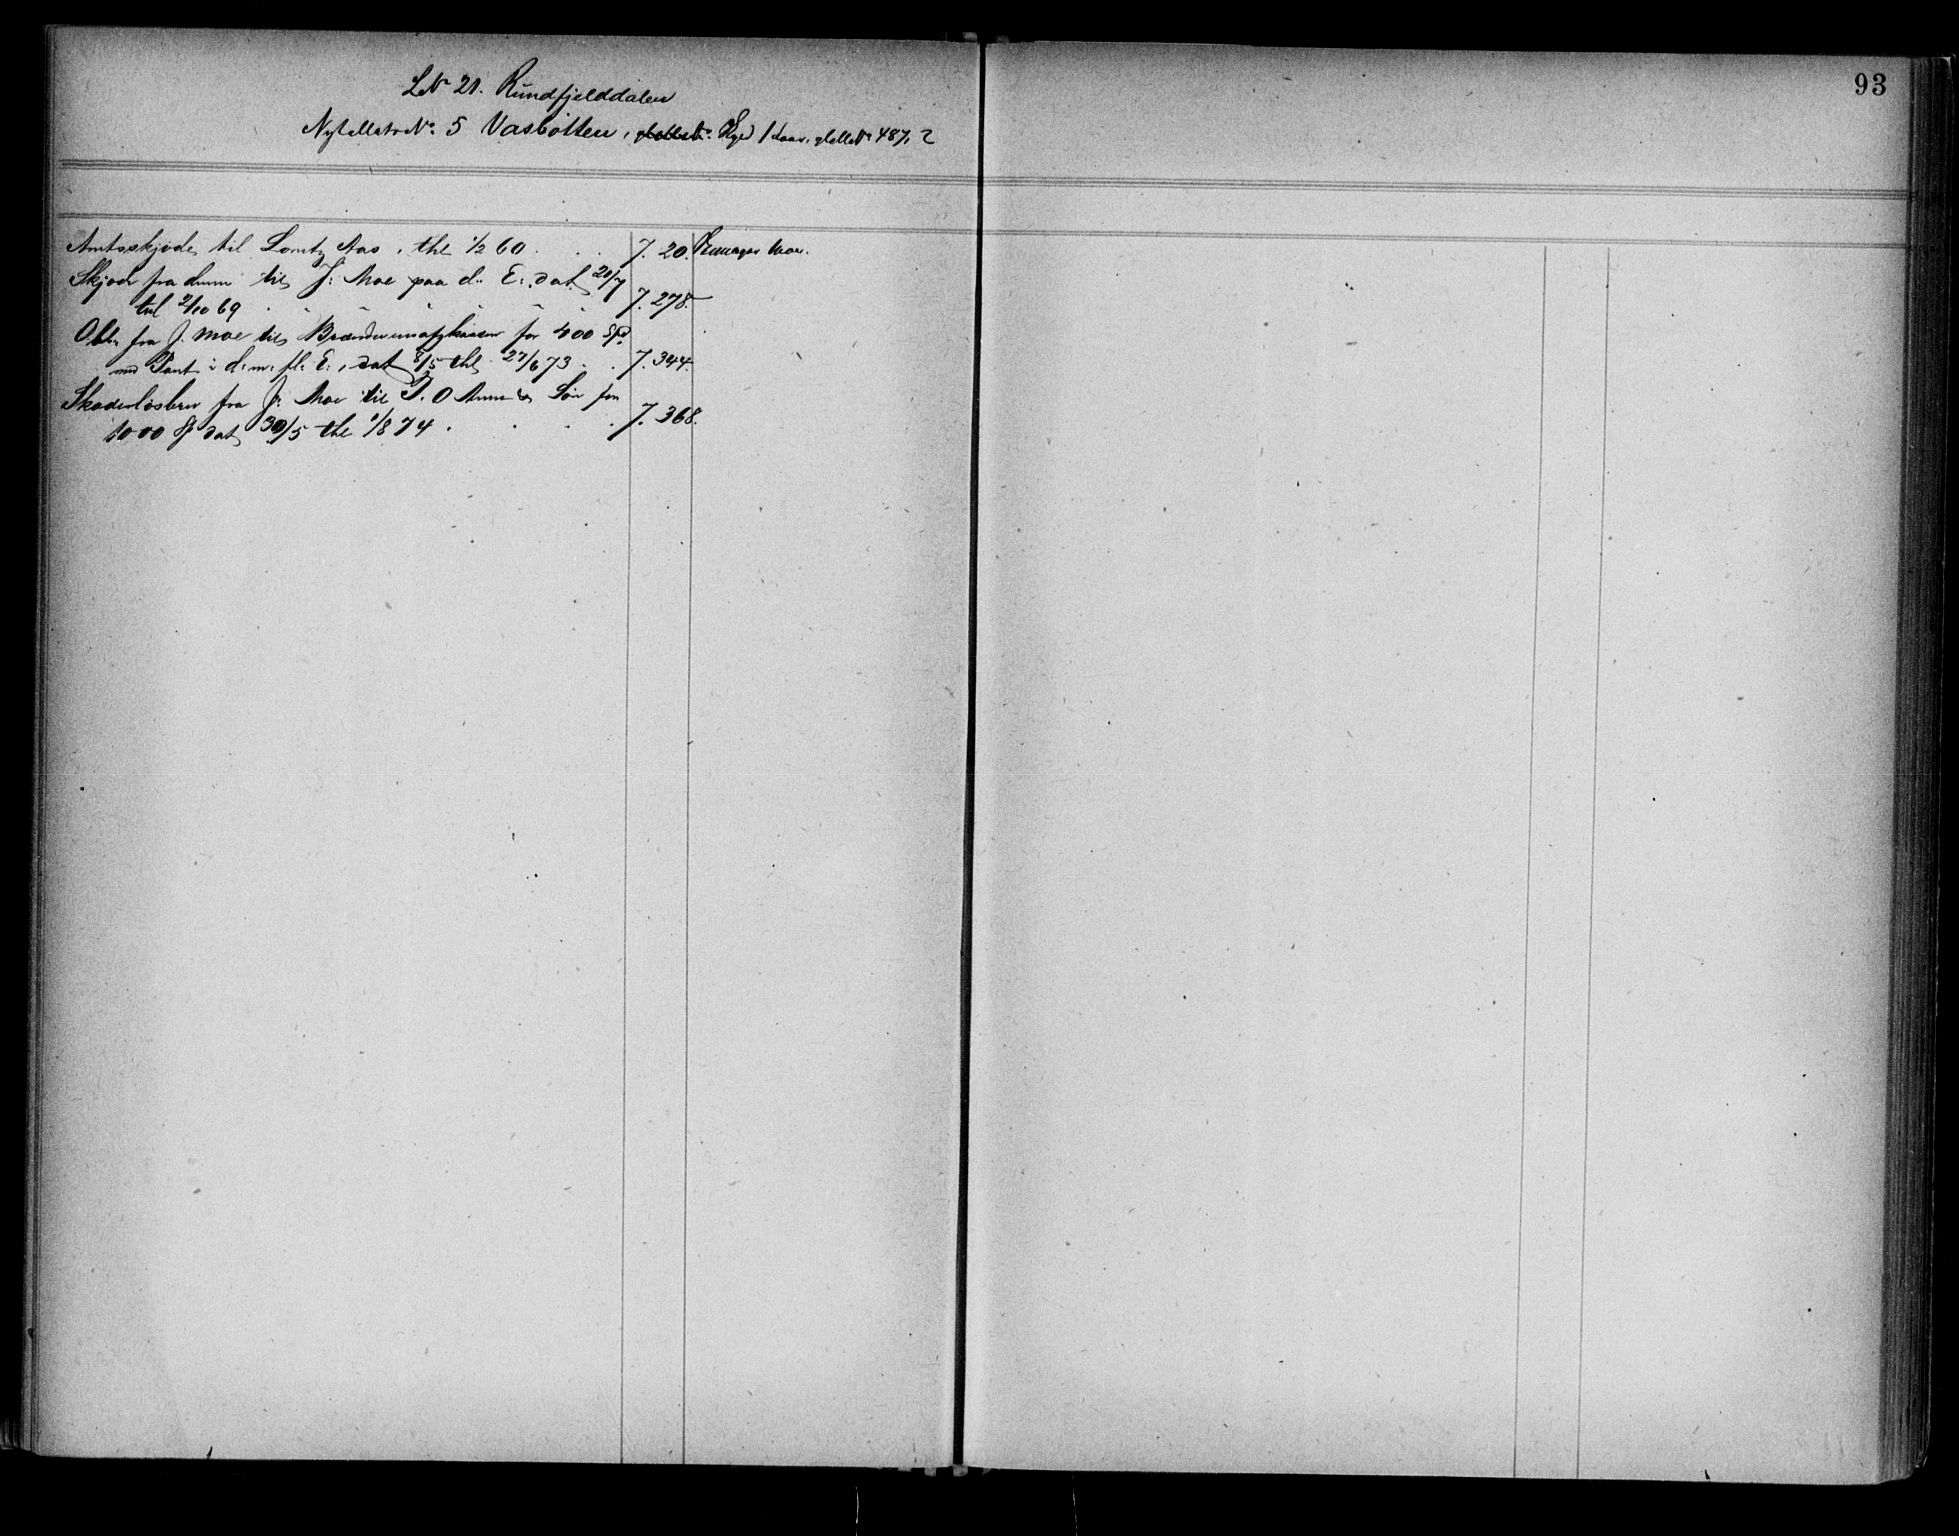 93
LNr 21. Rundfjelddalen
Nyt eller No. 5 Vasbotten, Skyld 1 487, 2
Amtsskjøde til Lorntz Aas, thl 1/2 60 . . . 7. 20.
Skjøde fra denne til J: Moe paa d: E: dat 20/7
thl 2/10 69 7. 278.
Obl. fra J. Moe til for 400 Spd
med Pant i d: m: fl: E:, dat 8/5 thl 27/6 73 . . 7. 344.
Skadesløsbrev fra J: Moe til Søn for
1000 Spd dat 30/5 thl 1/8 74 . . . . 7. 368.